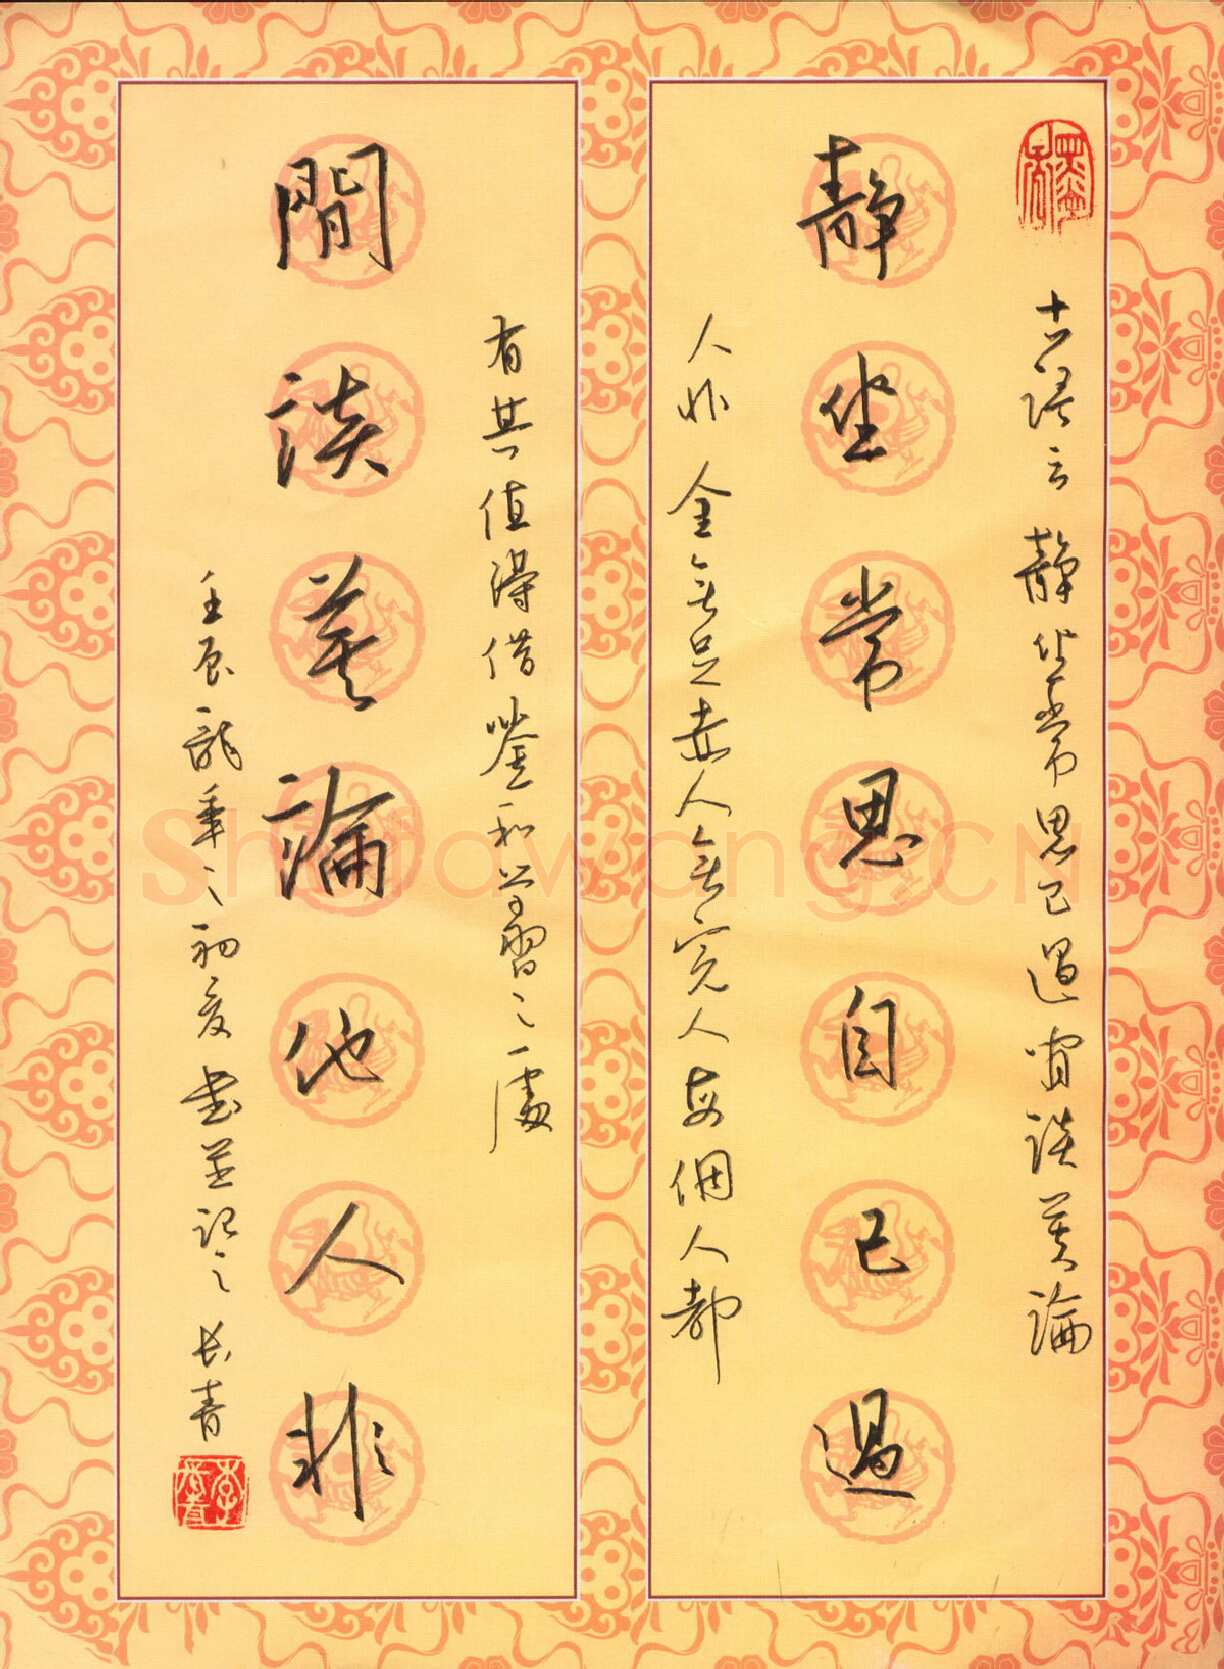 古語云静坐常思己過閒談莫論
静坐常思自己過
人非 金無足赤人無完人每個人都
有其值得借鑒和學習之處
閒談莫論他人非
壬辰龍年之初夏書並記之 長青
Shufawang.CN